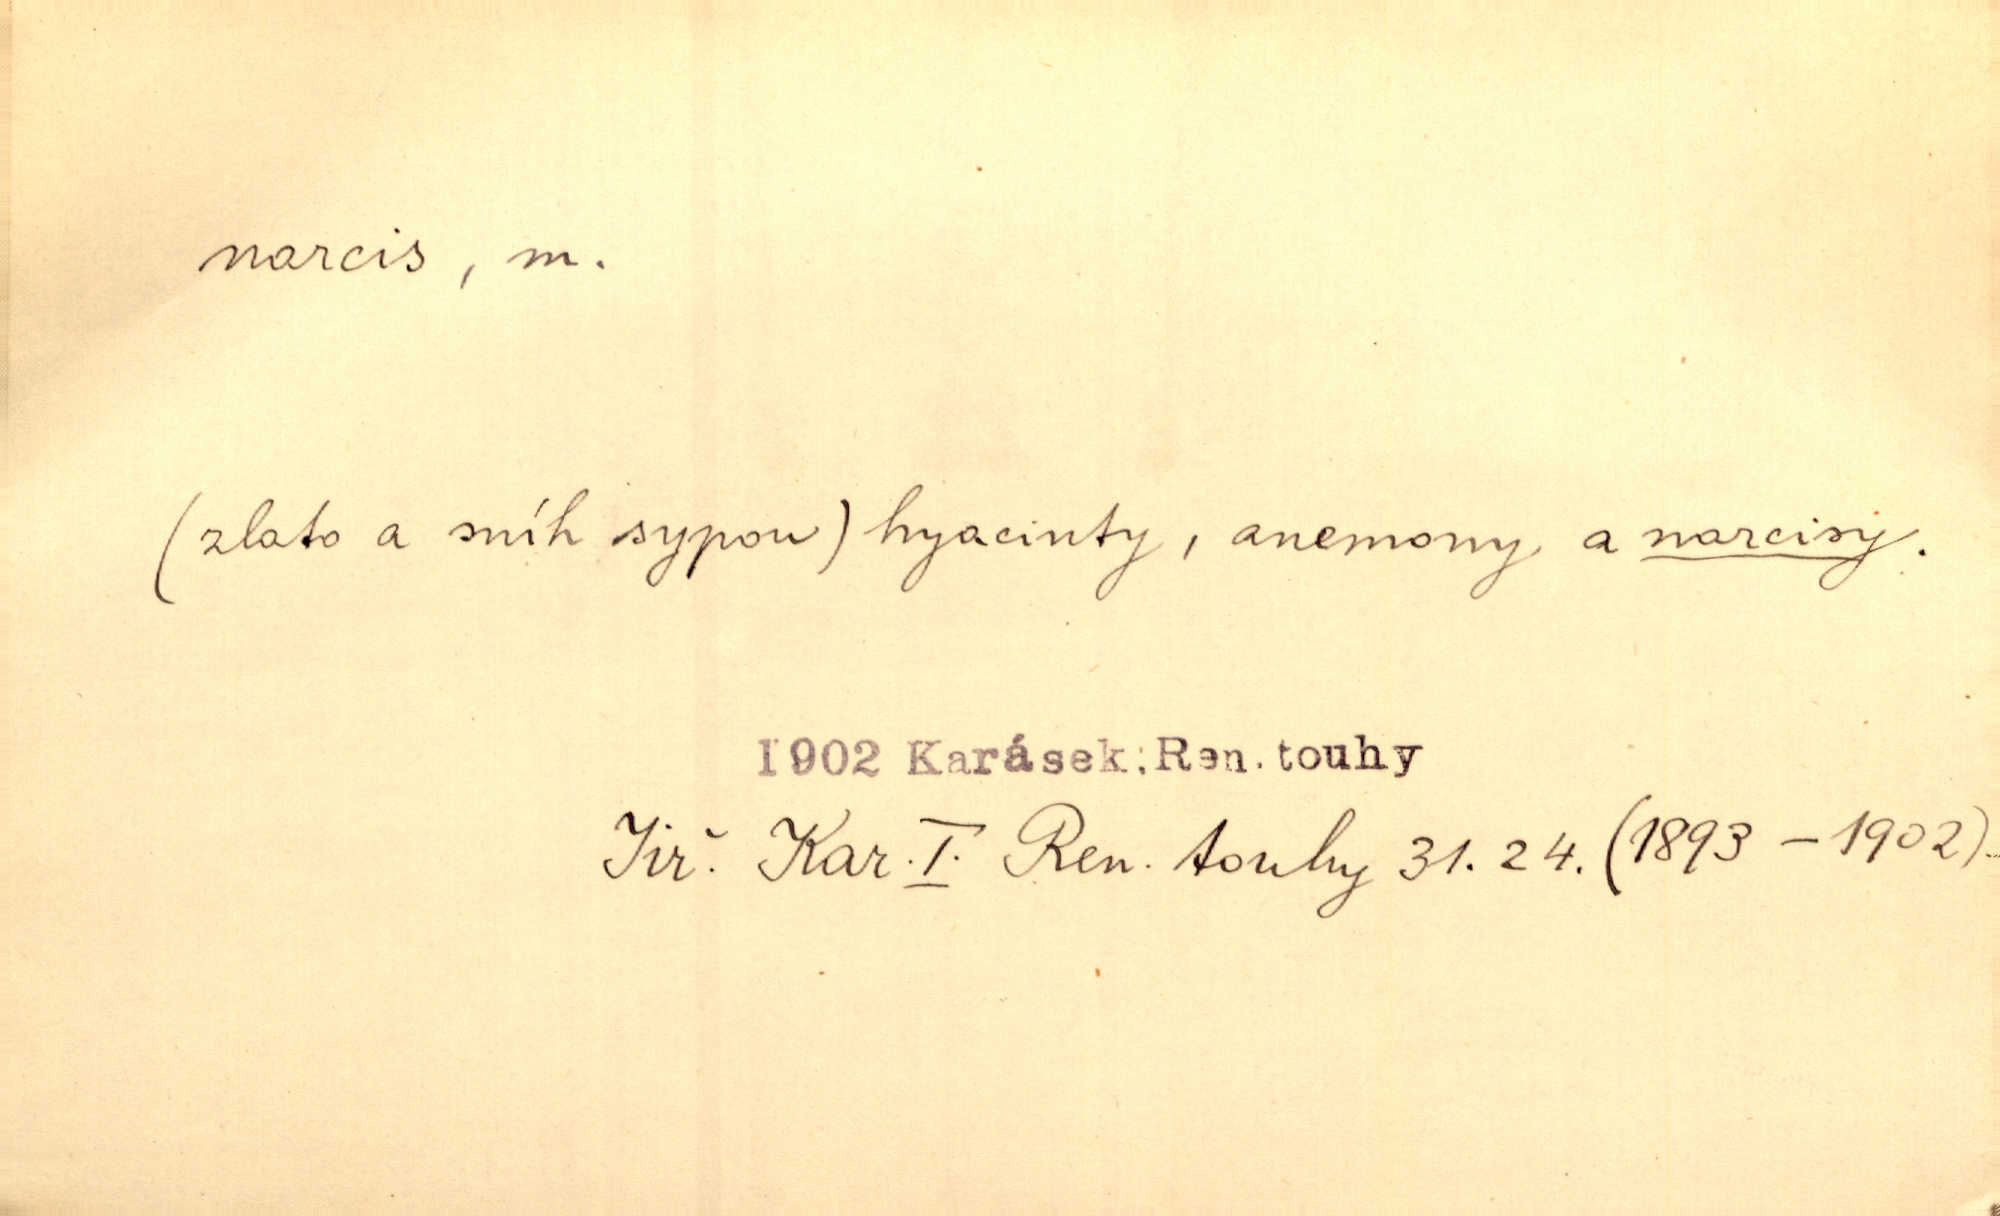 narcis, m.
(zlato a sníh sypou) hyacinty, anemony a narcisy.
1902 Karásek: Ren. touhy
Jiř. Kar. I. Ren. touhy 31. 24. (1893 – 1902).